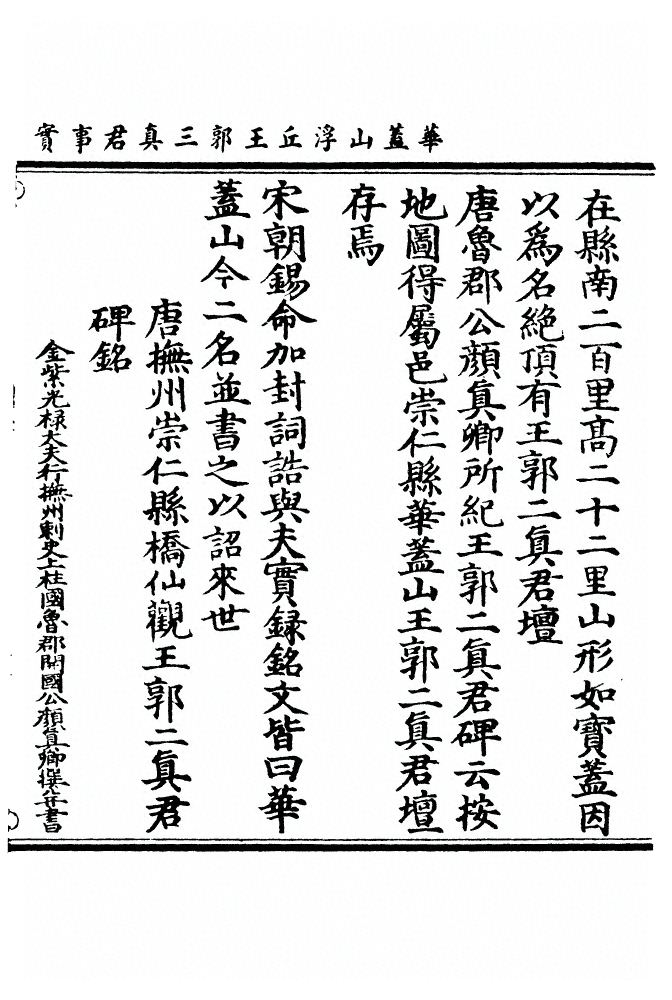 華蓋山浮丘王郭三真君事實
在縣南二百里髙二十二里山形如寳蓋因
以爲名絶頂有王郭二眞君壇
唐魯郡公顔眞卿所紀王郭二眞君碑云按
地圖得屬邑崇仁縣華蓋山王郭二眞君壇
存焉
宋朝錫命加封詞誥與夫實録銘文皆曰華
蓋山今二名並書之以詔來世
唐撫州崇仁縣橋仙觀王郭二眞君
碑銘
金紫光禄大夫行撫州刺史上柱國魯郡開國公顔眞卿撰并書